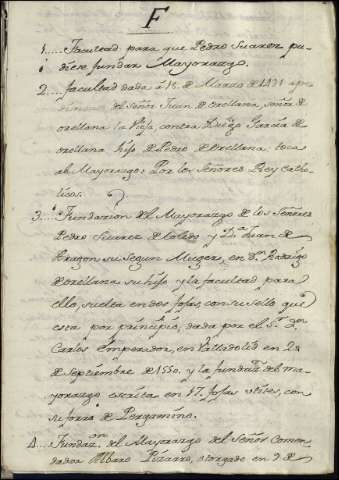 F
1.... Facultad para que Pedro Suarez pu-
diese fundar Mayorazgo.
2... facultad dada á 15. de Marzo de 1491 a
del Señor Juan de orellana, señor de
orellana la Vieja, contra Diego Garcia de
orellana hijo de Pedro de Orellana, toca
al Mayorazgo: Por los Señores Rey Catho-
licos.
3... Fundacion del Mayorazgo de los Señores
Pedro Suarez de toledo y Dª. Juan de
Aragon su Segun Muger, en Dn. Rodrigo
de orellana su hijo y la facultad para
ello, suelta en dos fojas, con su sello que
esta por principio, dada por el Sr. Dn.
Carlos Emperador, en Valladolid en 20
de Septiembre de 1550. y la fundazn. del ma-
yorazgo escrita en 17. fojas utiles, con
su forro de Pergamino.
4... Fundazn. del Mayorazgo del Señor Comen-
dador Albaro Pizarro, otorgado en 9 de